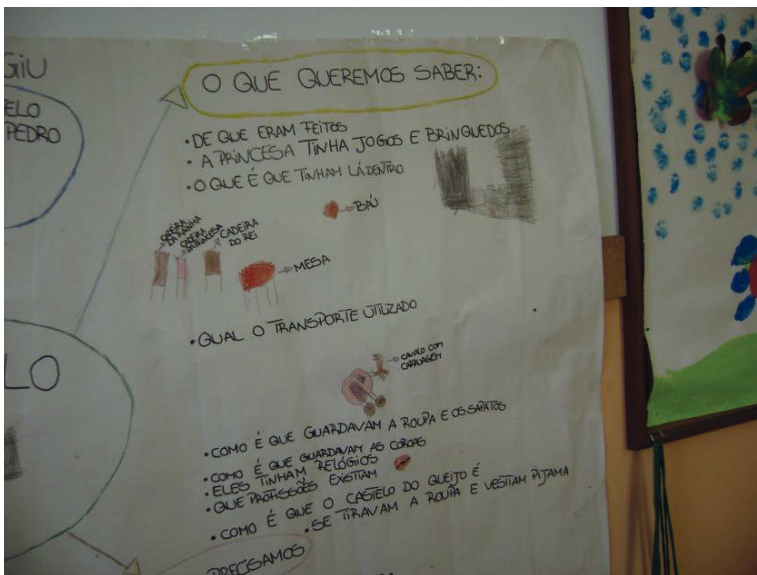 GIU
ELO
PEDRO
O QUE QUEREMOS SABER:
• DE QUE ERAM FEITOS
• A PRINCESA TINHA JOGOS E BRINQUEDOS
• O QUE É QUE TINHAM LÁ DENTRO
BAÚ
CADEIRA DA RAINHA
CADEIRA DA PRINCESA
CADEIRA DO REI
MESA
• QUAL O TRANSPORTE UTILIZADO
CAVALO COM
CARRUAGEM
• COMO É QUE GUARDAVAM A ROUPA E OS SAPATOS
• COMO É QUE GUARDAVAM AS COROAS
• ELES TINHAM RELÓGIOS
• QUE PROFISSÕES EXISTIAM
• COMO É QUE O CASTELO DO QUEIJO É
• SE TIRAVAM A ROUPA E VESTIAM PIJAMA
LO
PRECISAMOS